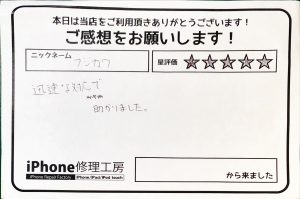 本日は当店をご利用頂きありがとうございます!
ご感想をお願いします!
ニックネーム
フジカワ
星評価
迅速な対応で
助かりました。
iPhone修理工房
iPhone Repair Factory iPhone/iPad/iPod touch
から来ました